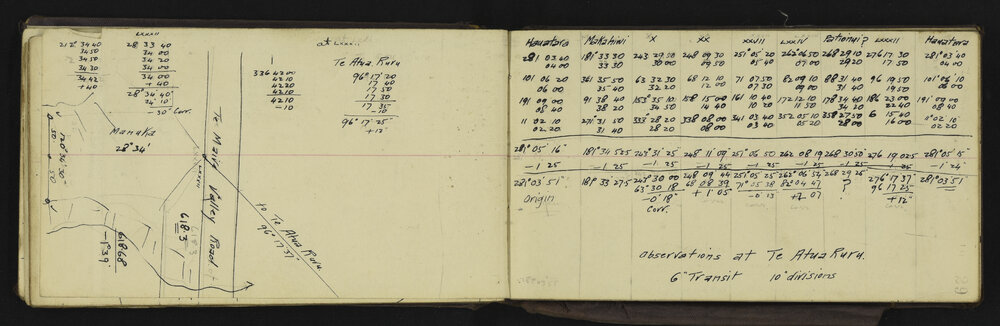 LXXXII
at LXXXII
212° 34 40
34 50
34 50
34 30
34 42
+ 40
28 33 40
34 00
34 20
34 00
34 00
+ 40
28° 34' 40"
34' 10"
-30 Corr.
336 42 00
42 10
42 20
42 10
42 10
-10
Te Atua Ruru
96° 17' 20
17 40
17 50
17 30
17 35
-10
96° 17' 25"
+12"
Manuka
28° 34'
LXXXII
Te Maire Valley Road
618.3
61868
-1°39'
to Te Atua Ruru
96° 17' 37"
Hauatara Makahiwi X XX XXVII LXXIV Patohui? LXXXII Hauatara
281 03 40 181° 33 30 243 29 50 248 09 30 251° 05 20 262° 06 50 268 29 10 276 17 30 281° 03 40
04 00 33 30 30 00 09 50 05 40 07 00 29 20 17 50 04 00
101 06 20 361 35 50 63 32 30 68 12 10 71 07 50 82 09 10 88 31 40 96 19 50 101° 06' 10
06 00 35 40 32 20 12 00 07 30 09 00 31 40 19 50 06 00
191 09 00 91 38 40 153° 35 10 158 15 00 161 10 40 172 12 10 178 34 40 186 23 00 191° 09 00
08 40 38 20 34 50 14 40 10 20 11 50 34 20 22 40 08 40
11 02 10 271° 31 50 333° 28 20 338 08 00 341 03 40 352 05 10 358 27 50 6 15 40 11° 02' 10
02 20 31 40 28 20 08 00 03 40 05 20 28 00 16 00 02 20
281° 05' 16" 181° 34 52.5 243° 31' 25 248 11 09 251° 06 50 262 08 19 268 30 50 276 19 02.5 281° 05' 15"
-1 25 -1 25 -1 25 -1 25 -1 25 -1 25 -1 25 -1 25 -1 24
281° 03' 51" 181° 33 27.5 243° 30 00 248 09 44 251° 05 25 262° 06 54 268 29 25 276° 17' 37" 281° 03' 51"
Origin 63° 30 18 68 08 39 71° 05 38 82° 04 47 ? 96 17 25
-0' 18" +1' 05 -0' 13 +2 07 +12"
Corr.
Observations at Te Atua Ruru.
6" Transit 10" divisions